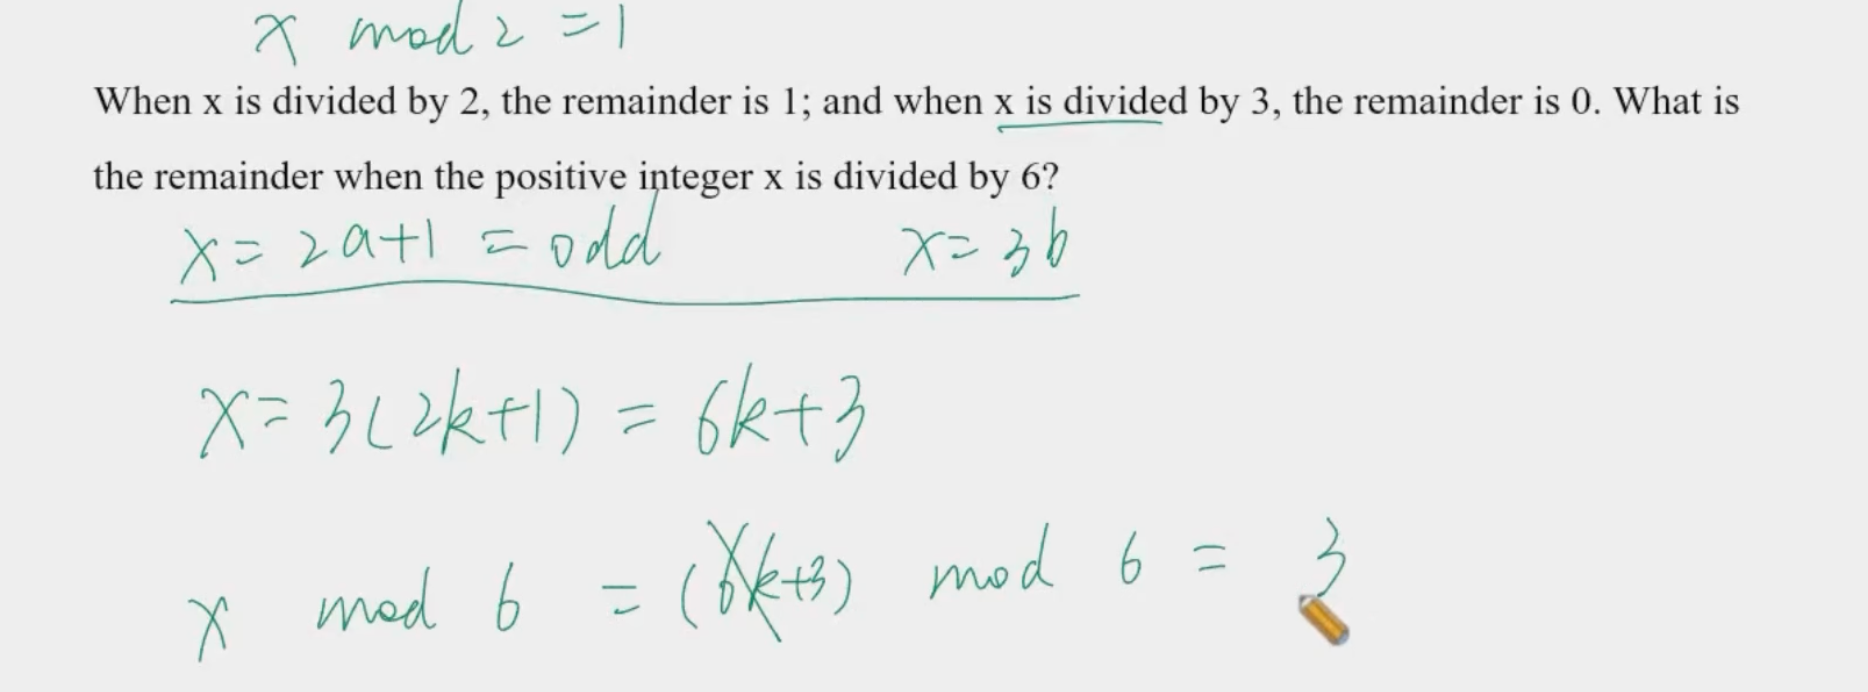 x mod 2 = 1
When x is divided by 2, the remainder is 1; and when x is divided by 3, the remainder is 0. What is
the remainder when the positive integer x is divided by 6?
x = 2a+1 = odd x = 3b
x = 3(2k+1) = 6k+3
x mod 6 = (6k+3) mod 6 = 3